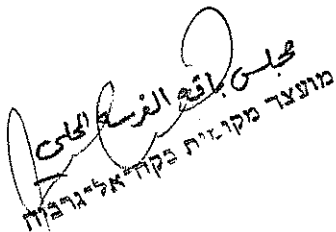 مجلس باقة الغربية المحلي
מועצה מקומית בקה־אל־גרביה